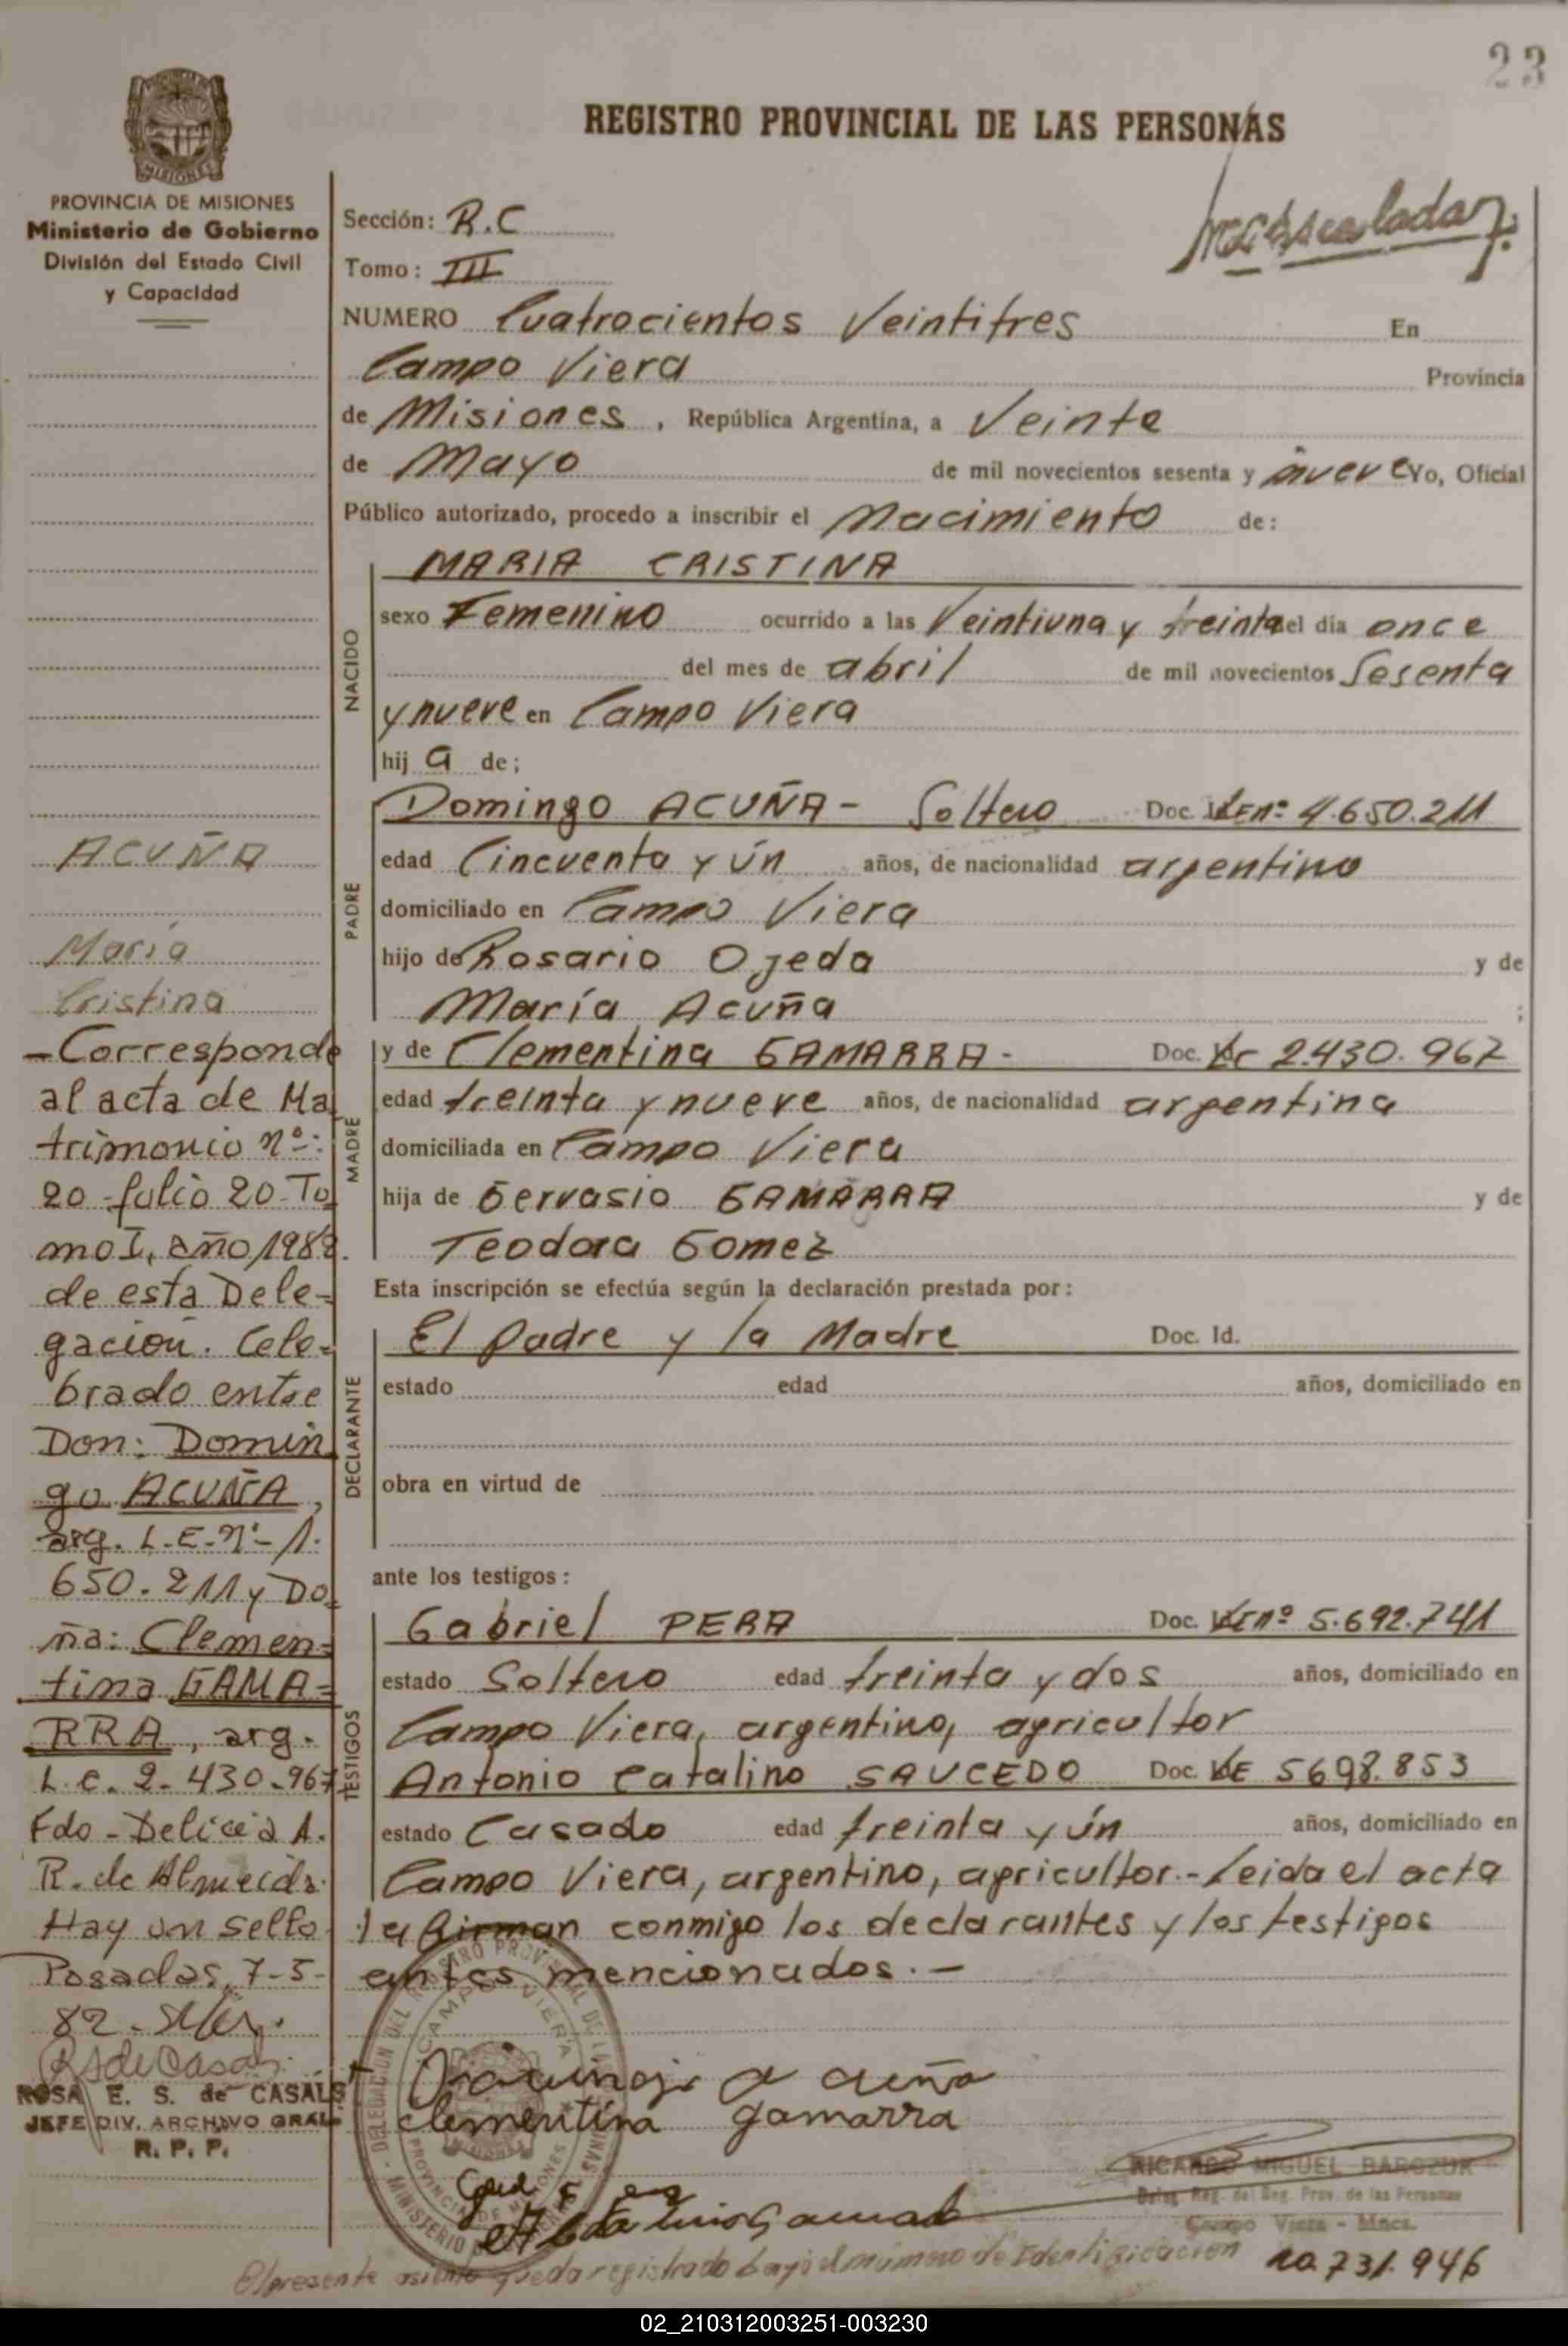 23
REGISTRO PROVINCIAL DE LAS PERSONAS
PROVINCIA DE MISIONES
Ministerio de Gobierno
División del Estado Civil
y Capacidad
Sección: R.C
Tomo: III
NUMERO Cuatrocientos Veintitres En
Campo Viera Provincia
de Misiones, República Argentina, a Veinte
de Mayo de mil novecientos sesenta y nueve Yo, Oficial
Público autorizado, procedo a inscribir el Nacimiento de:
NACIDO
MARIA CRISTINA
sexo Femenino ocurrido a las Veintiuna y treinta del día once
del mes de abril de mil novecientos Sesenta
y nueve en Campo Viera
hij a de;
PADRE
Domingo ACUÑA - Soltero Doc. LEnº 4.650.211
edad Cincuenta y ún años, de nacionalidad argentino
domiciliado en Campo Viera
hijo de Rosario Ojeda y de
María Acuña ;
MADRE
y de Clementina GAMARRA - Doc. LC 2430.967
edad treinta y nueve años, de nacionalidad argentina
domiciliada en Campo Viera
hija de Gervasio GAMARRA y de
Teodora Gomez
Esta inscripción se efectúa según la declaración prestada por:
DECLARANTE
El padre y la Madre Doc. Id.
estado edad años, domiciliado en
obra en virtud de
ante los testigos:
TESTIGOS
Gabriel PERA Doc. LEnº 5.692.741
estado Soltero edad treinta y dos años, domiciliado en
Campo Viera, argentino, agricultor
Antonio Catalino SAUCEDO Doc. LE 5698.853
estado Casado edad treinta y ún años, domiciliado en
Campo Viera, argentino, agricultor.- Leida el acta
la firman conmigo los declarantes y los testigos
antes mencionados. -
ACUÑA
María
Cristina
- Corresponde
al acta de Ma
trimonio nº:
20-folio 20-To
mo I, año 1982.
de esta Dele-
gación. Cele-
brado entre
Don: Domin
go ACUÑA,
arg. L.E-nº- 1.
650.211 y Do
ña: Clemen-
tina GAMA=
RRA, arg.
L.C. 2-430-967
Fdo- Delicia A.
R. de Almeida.
Hay un sello
Posadas, 7-5-
82.
RSdeCasals
ROSA E. S. de CASALS
JEFE DIV. ARCHIVO GRAL
R. P. P.
DELEGACION DEL REGISTRO PROVINCIAL DE LAS PERSONAS
CAMPO VIERA
PROVINCIA DE MISIONES
Domingo acuña
Clementina gamarra
RICARDO MIGUEL BARCZUK
Deleg. Reg. del Reg. Prov. de las Personas
Campo Viera - Mnes.
El presente asiento queda registrado bajo el número de Identificación 20.731.946
02_210312003251-003230